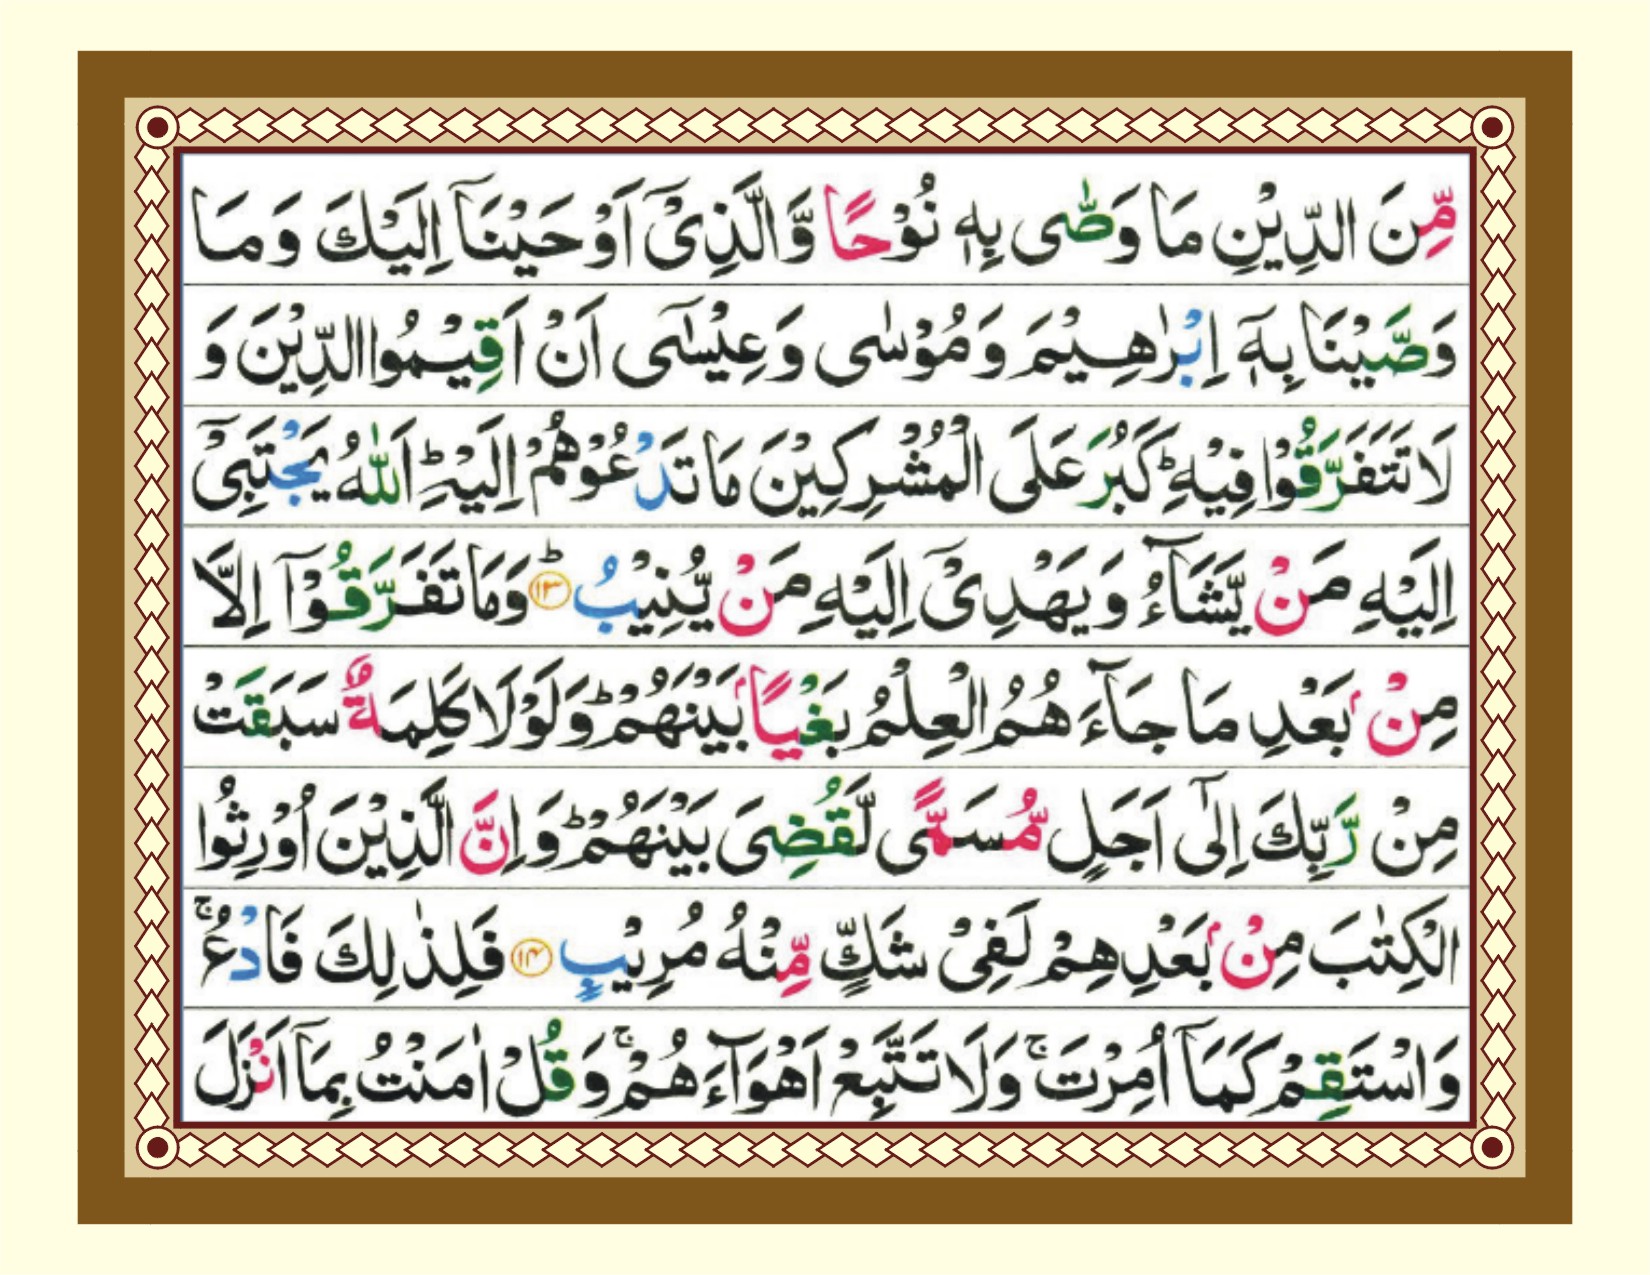 مِّنَ الدِّيْنِ مَا وَصّٰى بِهٖ نُوْحًا وَّالَّذِىْۤ اَوْحَيْنَاۤ اِلَيْكَ وَمَا
وَصَّيْنَا بِهٖۤ اِبْرٰهِيْمَ وَمُوْسٰى وَعِيْسٰٓى اَنْ اَقِيْمُوا الدِّيْنَ وَ
لَا تَتَفَرَّقُوْا فِيْهِ ؕ كَبُرَ عَلَى الْمُشْرِكِيْنَ مَا تَدْعُوْهُمْ اِلَيْهِ ؕ اَللّٰهُ يَجْتَبِىْۤ
اِلَيْهِ مَنْ يَّشَآءُ وَيَهْدِىْۤ اِلَيْهِ مَنْ يُّنِيْبُ ؕ‏﴿۱۳﴾ وَمَا تَفَرَّقُوْۤا اِلَّا
مِنْۢ بَعْدِ مَا جَآءَهُمُ الْعِلْمُ بَغْيًاۢ بَيْنَهُمْ ؕ وَلَوْلَا كَلِمَةٌ سَبَقَتْ
مِنْ رَّبِّكَ اِلٰٓى اَجَلٍ مُّسَمًّى لَّقُضِىَ بَيْنَهُمْ ؕ وَاِنَّ الَّذِيْنَ اُوْرِثُوا
الْكِتٰبَ مِنْۢ بَعْدِهِمْ لَفِىْ شَكٍّ مِّنْهُ مُرِيْبٍ ﴿۱۴﴾ فَلِذٰلِكَ فَادْعُ ۚ
وَاسْتَقِمْ كَمَاۤ اُمِرْتَ ۚ وَلَا تَتَّبِعْ اَهْوَآءَهُمْ ۚ وَقُلْ اٰمَنْتُ بِمَاۤ اَنْزَلَ